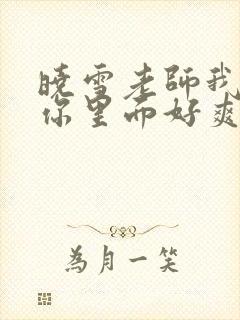 曉雪老師我
你里而好爽
為月一笑